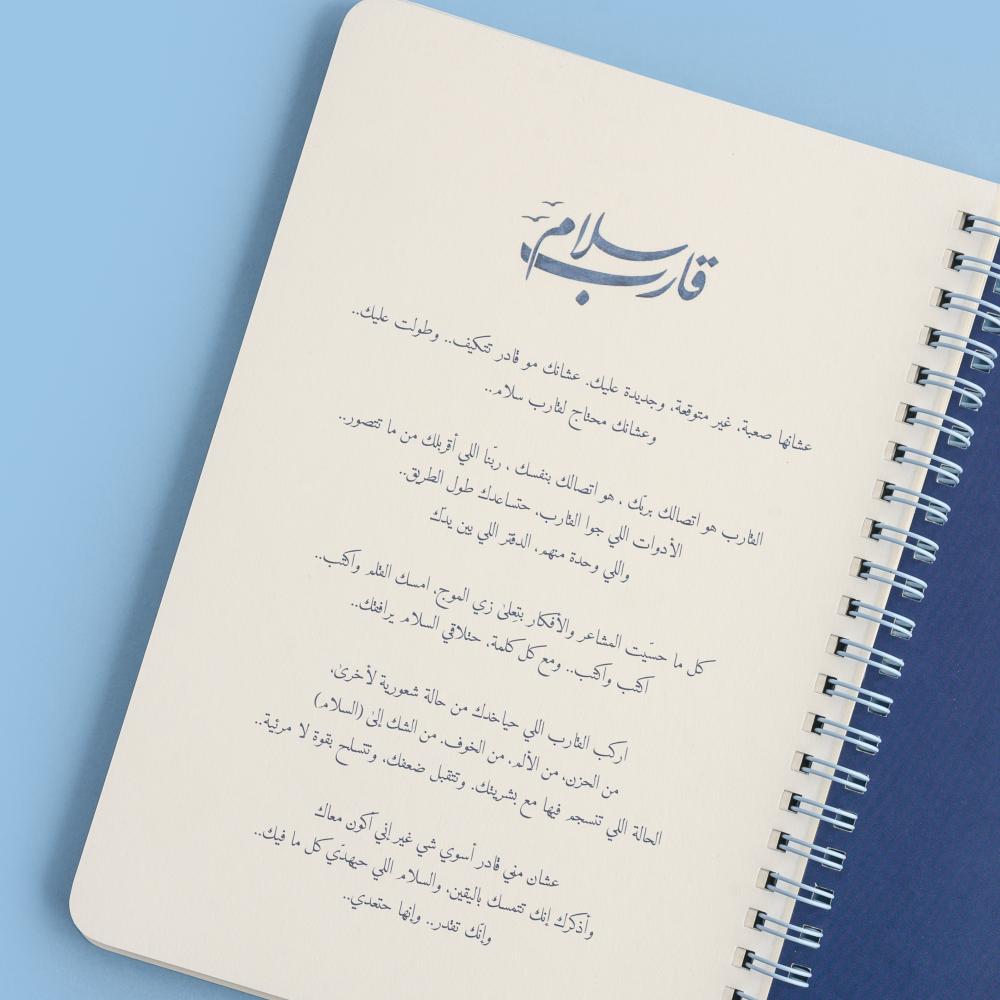 قارب سلام
عشانها صعبة، غير متوقعة، وجديدة عليك. عشانك مو قادر تتكيف.. وطولت عليك..
وعشانك محتاج لقارب سلام..
القارب هو اتصالك بربّك ، هو اتصالك بنفسك ، ربّنا اللي أقربلك من ما تتصور..
الأدوات اللي جوا القارب، حتساعدك طول الطريق..
واللي وحدة منهم، الدفتر اللي بين يدك
كل ما حسّيت المشاعر والأفكار بتِعلىٰ زي الموج، امسك القلم واكتب..
اكتب واكتب.. ومع كل كلمة، حتلاقي السلام يرافقك..
اركب القارب اللي حياخدك من حالة شعورية لأخرىٰ،
من الحزن، من الألم، من الخوف، من الشك إلىٰ (السلام)
الحالة اللي تنسجم فيها مع بشريتك. وتتقبل ضعفك، وتتسلح بقوة لا مرئية..
عشان مني قادر أسوي شي غير إني أكون معاك
وأذكرك إنك تتمسك باليقين، والسلام اللي حيهدّي كل ما فيك..
وإنّك تقدر.. وإنها حتعدي..